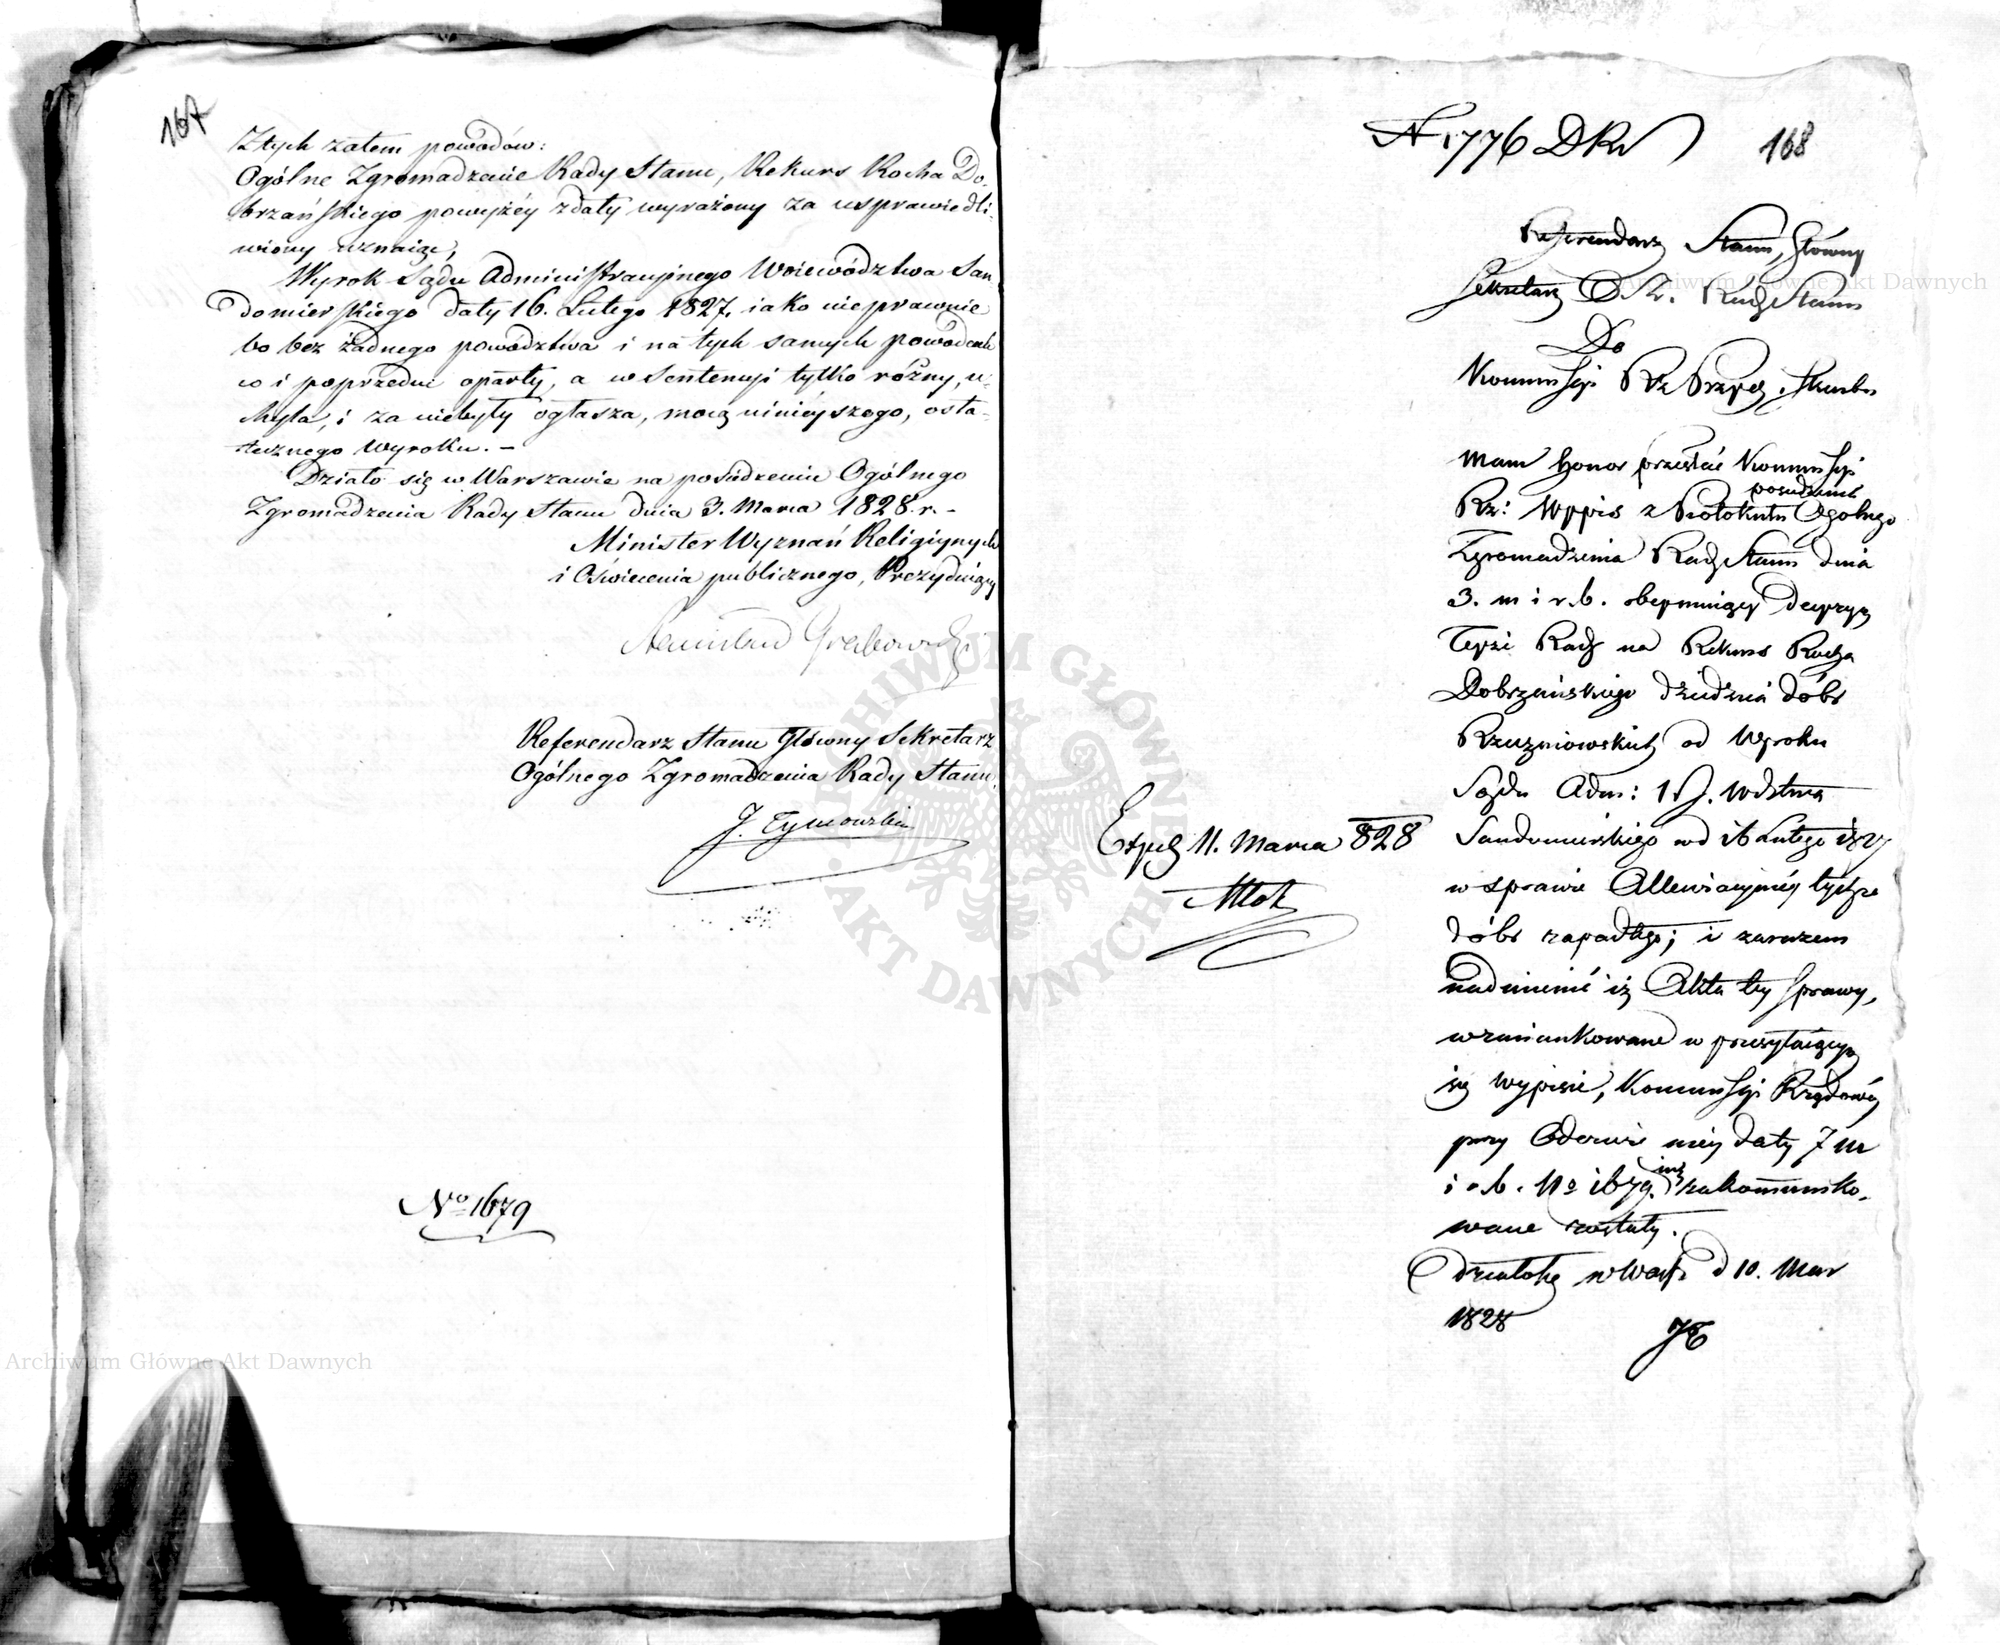 167
Z tych zatem powodów:
Ogólne Zgromadzenie Rady Stanu, Rekurs Rocha Do-
brzańskiego powyżéy z daty wyrażony za usprawiedli-
wiony uznaiąc,
Wyrok Sądu Administracyinego Woiewództwa San-
domierskiego daty 16. Lutego 1827, iako nieprawnie
bo bez żadnego powództwa i na tych samych powodach
co i poprzedni oparty, a w Sentencyi tylko różny, u-
chyla, i za niebyły ogłasza, mocą ninieyszego, osta-
tecznego Wyroku. –
Działo się w Warszawie na posiedzeniu Ogólnego
Zgromadzenia Rady Stanu dnia 3. Marca 1828. r. –
Minister Wyznań Religiynych
i Oświecenia publicznego, Prezyduiący
Stanisław Grabowski
Referendarz Stanu Główny Sekretarz
Ogólnego Zgromadzenia Rady Stanu
J. Tymowski
No 1679
N 1776 DRS
168
Referendarz Stanu, Główny
Sekretarz O. Z. Rady Stanu
Do
Kommissyi Rz Przych i Skarbu
Mam honor przesłać Kommissyi
posiedzenia
Rz: Wypis z Protokułu Ogólnego
Zgromadzenia Rady Stanu dnia
3. m i r. b. obeymuiący decyzyą
Teyże Rady na Rekurs Rocha
Dobrzańskiego dziedzica dóbr
Rzeczniowskich od Wyroku
Sądu Adm: 1 J. Wdztwa
Sandomirskiego pod 16 Lutego 1827
w sprawie Allewiacyinéy tychże
dóbr zapadłego; i zarazem
nadmienić iż Akta téy sprawy,
wzmiankowane w przesyłaiącym
się wypisie, Kommissyi Rządowéy
przy Odezwie méy daty 7 m
i r. b. No 1679. iuż zakommuniko-
wane zostały.
Działo się w Warsz d 10. Mar
1828
JT
Exped 11. Marca 828
Archiwum Główne Akt Dawnych
Archiwum Główne Akt Dawnych
ARCHIWUM GŁÓWNE AKT DAWNYCH